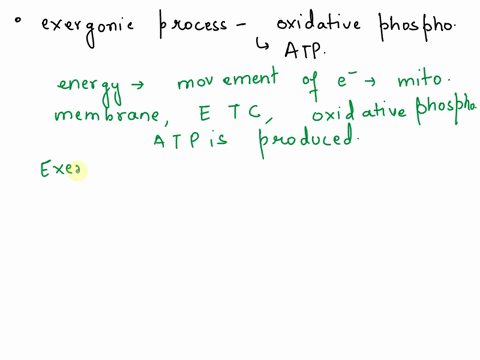 • exergonic process – oxidative phospho.
↳ ATP.
energy → movement of e⁻ → mito.
membrane, ETC, oxidative phospho
ATP is produced.
Exer